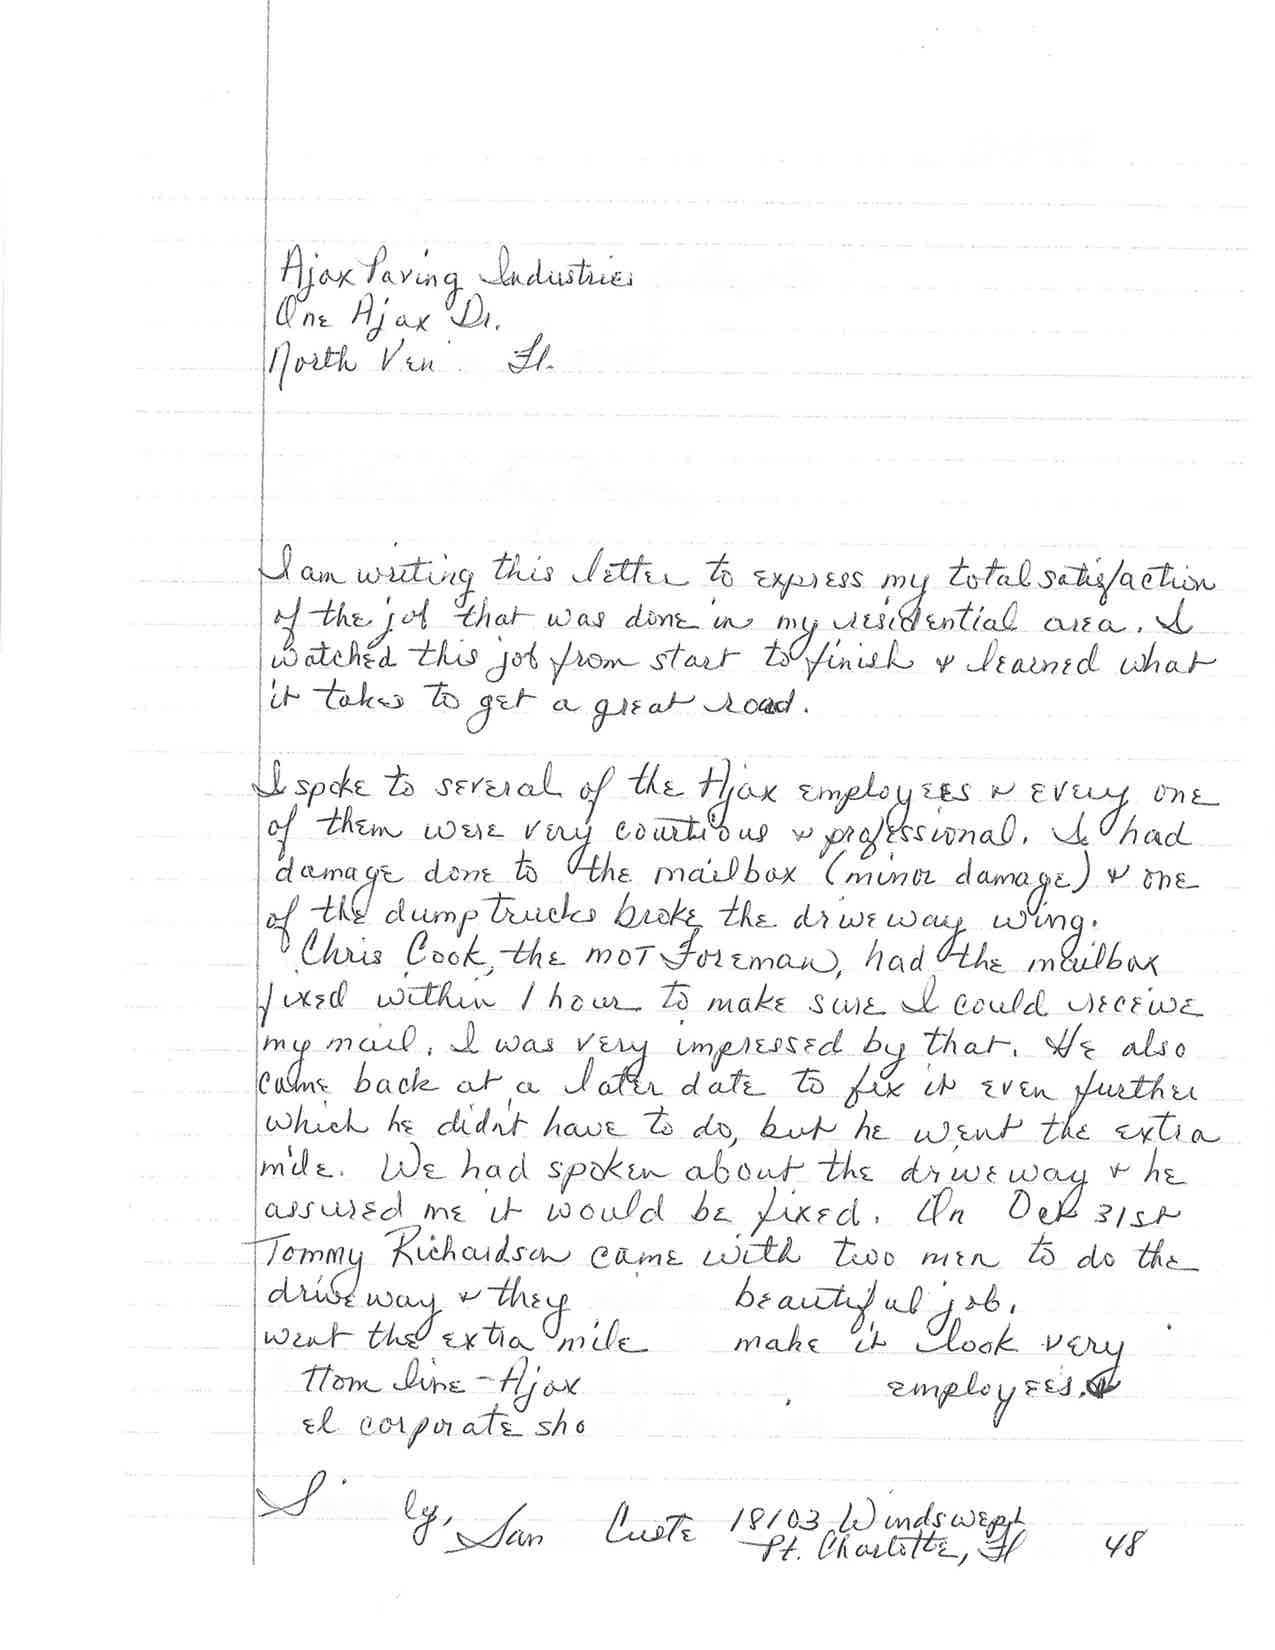 Ajax Paving Industries
One Ajax Dr.
North Ven Fl.
I am writing this letter to express my total satisfaction
of the job that was done in my residential area. I
watched this job from start to finish & learned what
it takes to get a great road.
I spoke to several of the Ajax employees & every one
of them were very courtious & professional. I had
damage done to the mailbox (minor damage) & one
of the dump trucks broke the driveway wing.
Chris Cook, the MOT Foreman, had the mailbox
fixed within 1 hour to make sure I could receive
my mail. I was very impressed by that. He also
came back at a later date to fix it even further
which he didn't have to do, but he went the extra
mile. We had spoken about the driveway & he
assured me it would be fixed. On Oct 31st
Tommy Richardson came with two men to do the
driveway & they beautiful job.
went the extra mile make it look very
ttom line - Ajax employees. &
el corporate sho
S ly, San Custe 18103 Windswept
Pt. Charlotte, Fl 48